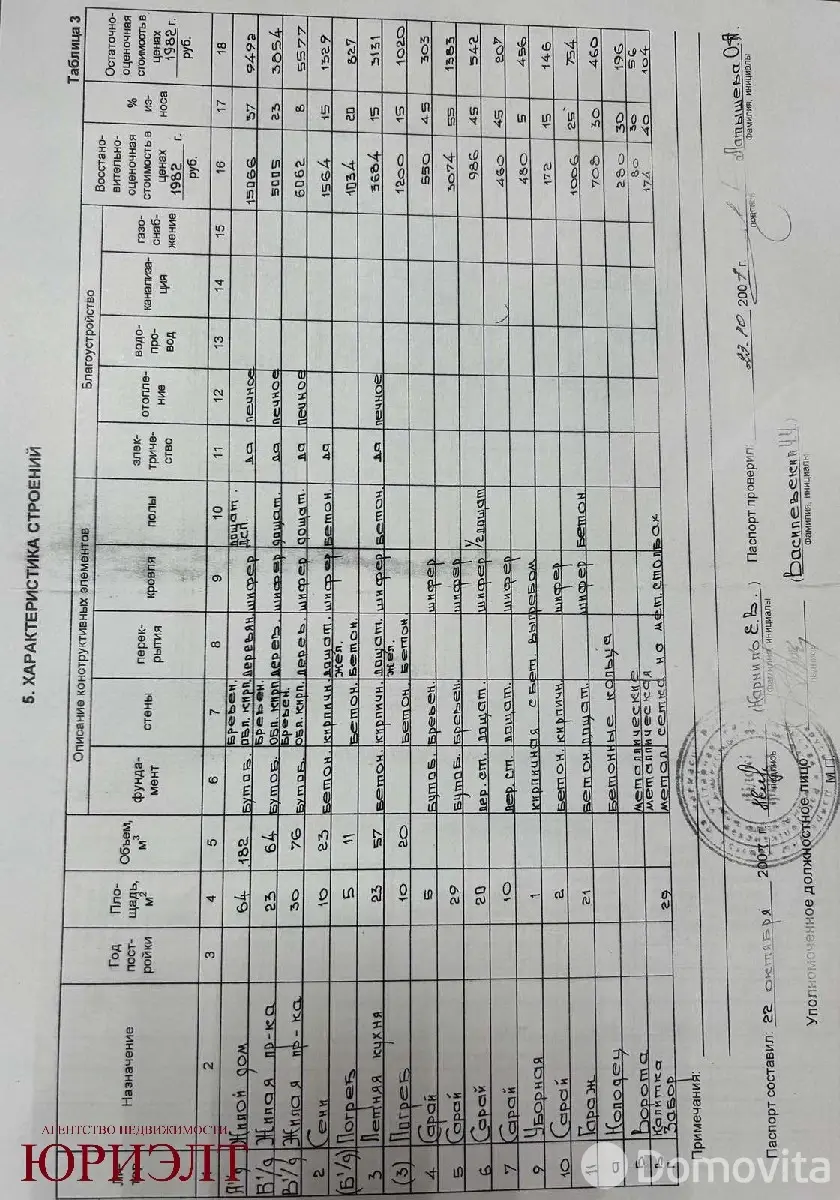 5. ХАРАКТЕРИСТИКА СТРОЕНИЙ
Таблица 3
Назначение | Год постройки | Площадь, м² | Объем, м³ | Описание конструктивных элементов | Благоустройство | Восстановительно-оценочная стоимость в ценах 1982 г. руб. | % износа | Остаточно-оценочная стоимость в ценах 1982 г. руб.
фундамент | стены | перекрытия | кровля | полы | электричество | отопление | водопровод | канализация | газоснабжение
2 | 3 | 4 | 5 | 6 | 7 | 8 | 9 | 10 | 11 | 12 | 13 | 14 | 15 | 16 | 17 | 18
Жилой дом | 64 | 182 | бутоб. | бревен. обл. кирп. | деревян. | шифер | дощат. ДСП | да | печное | 15066 | 37 | 9492
В'/д | Жилая пр-ка | 23 | 64 | бутоб. | бревен. обл. кирп. | дерев. | шифер | дощат. | да | печное | 5005 | 23 | 3854
В'/д | Жилая пр-ка | 30 | 76 | бутоб. | бревен. обл. кирп. | дерев. | шифер | дощат. | да | печное | 6062 | 8 | 5577
2 | Сени | 10 | 23 | бетон. | кирпичн. | дощат. | шифер | бетон. | да | 1564 | 15 | 1329
(Б'/д) | Погреб | 5 | 11 | бетон. | жел. бетон. | 1034 | 20 | 827
3 | Летняя кухня | 23 | 57 | бетон. | кирпичн. | дощат. | шифер | бетон. | да | печное | 3684 | 15 | 3131
(3) | Погреб | 10 | 20 | бетон. | жел. бетон. | 1200 | 15 | 1020
4 | Сарай | 5 | бутоб. | бревен. | шифер | 550 | 45 | 303
5 | Сарай | 29 | бутоб. | бревен. | шифер | 3074 | 55 | 1383
6 | Сарай | 20 | дер. ст. | дощат. | шифер | 1/2 дощат | 986 | 45 | 542
7 | Сарай | 10 | дер. ст. | дощат. | шифер | 460 | 45 | 207
9 | Уборная | 1 | кирпичная с бет. выгребом | 480 | 5 | 456
10 | Сарай | 2 | бетон. | кирпичн. | шифер | 172 | 15 | 146
11 | Гараж | 21 | бетон | дощат. | шифер | бетон | 1006 | 25 | 754
а | Колодец | бетонные кольца | 708 | 30 | 460
Ворота | металлические | 280 | 30 | 196
Калитка | металлическая | 80 | 30 | 56
Забор | 29 | метал. сетка на мет. столбах | 174 | 40 | 104
Примечания:
Паспорт составил: 22 октября 2007 г. (Жарнило Е.В.) Паспорт проверил: 22.10 2007 г. Латышева О.А
подпись фамилия, инициалы
Уполномоченное должностное лицо (Василевский
фамилия, инициалы
АГЕНТСТВО НЕДВИЖИМОСТИ
ЮРИЭЛТ
Domovita